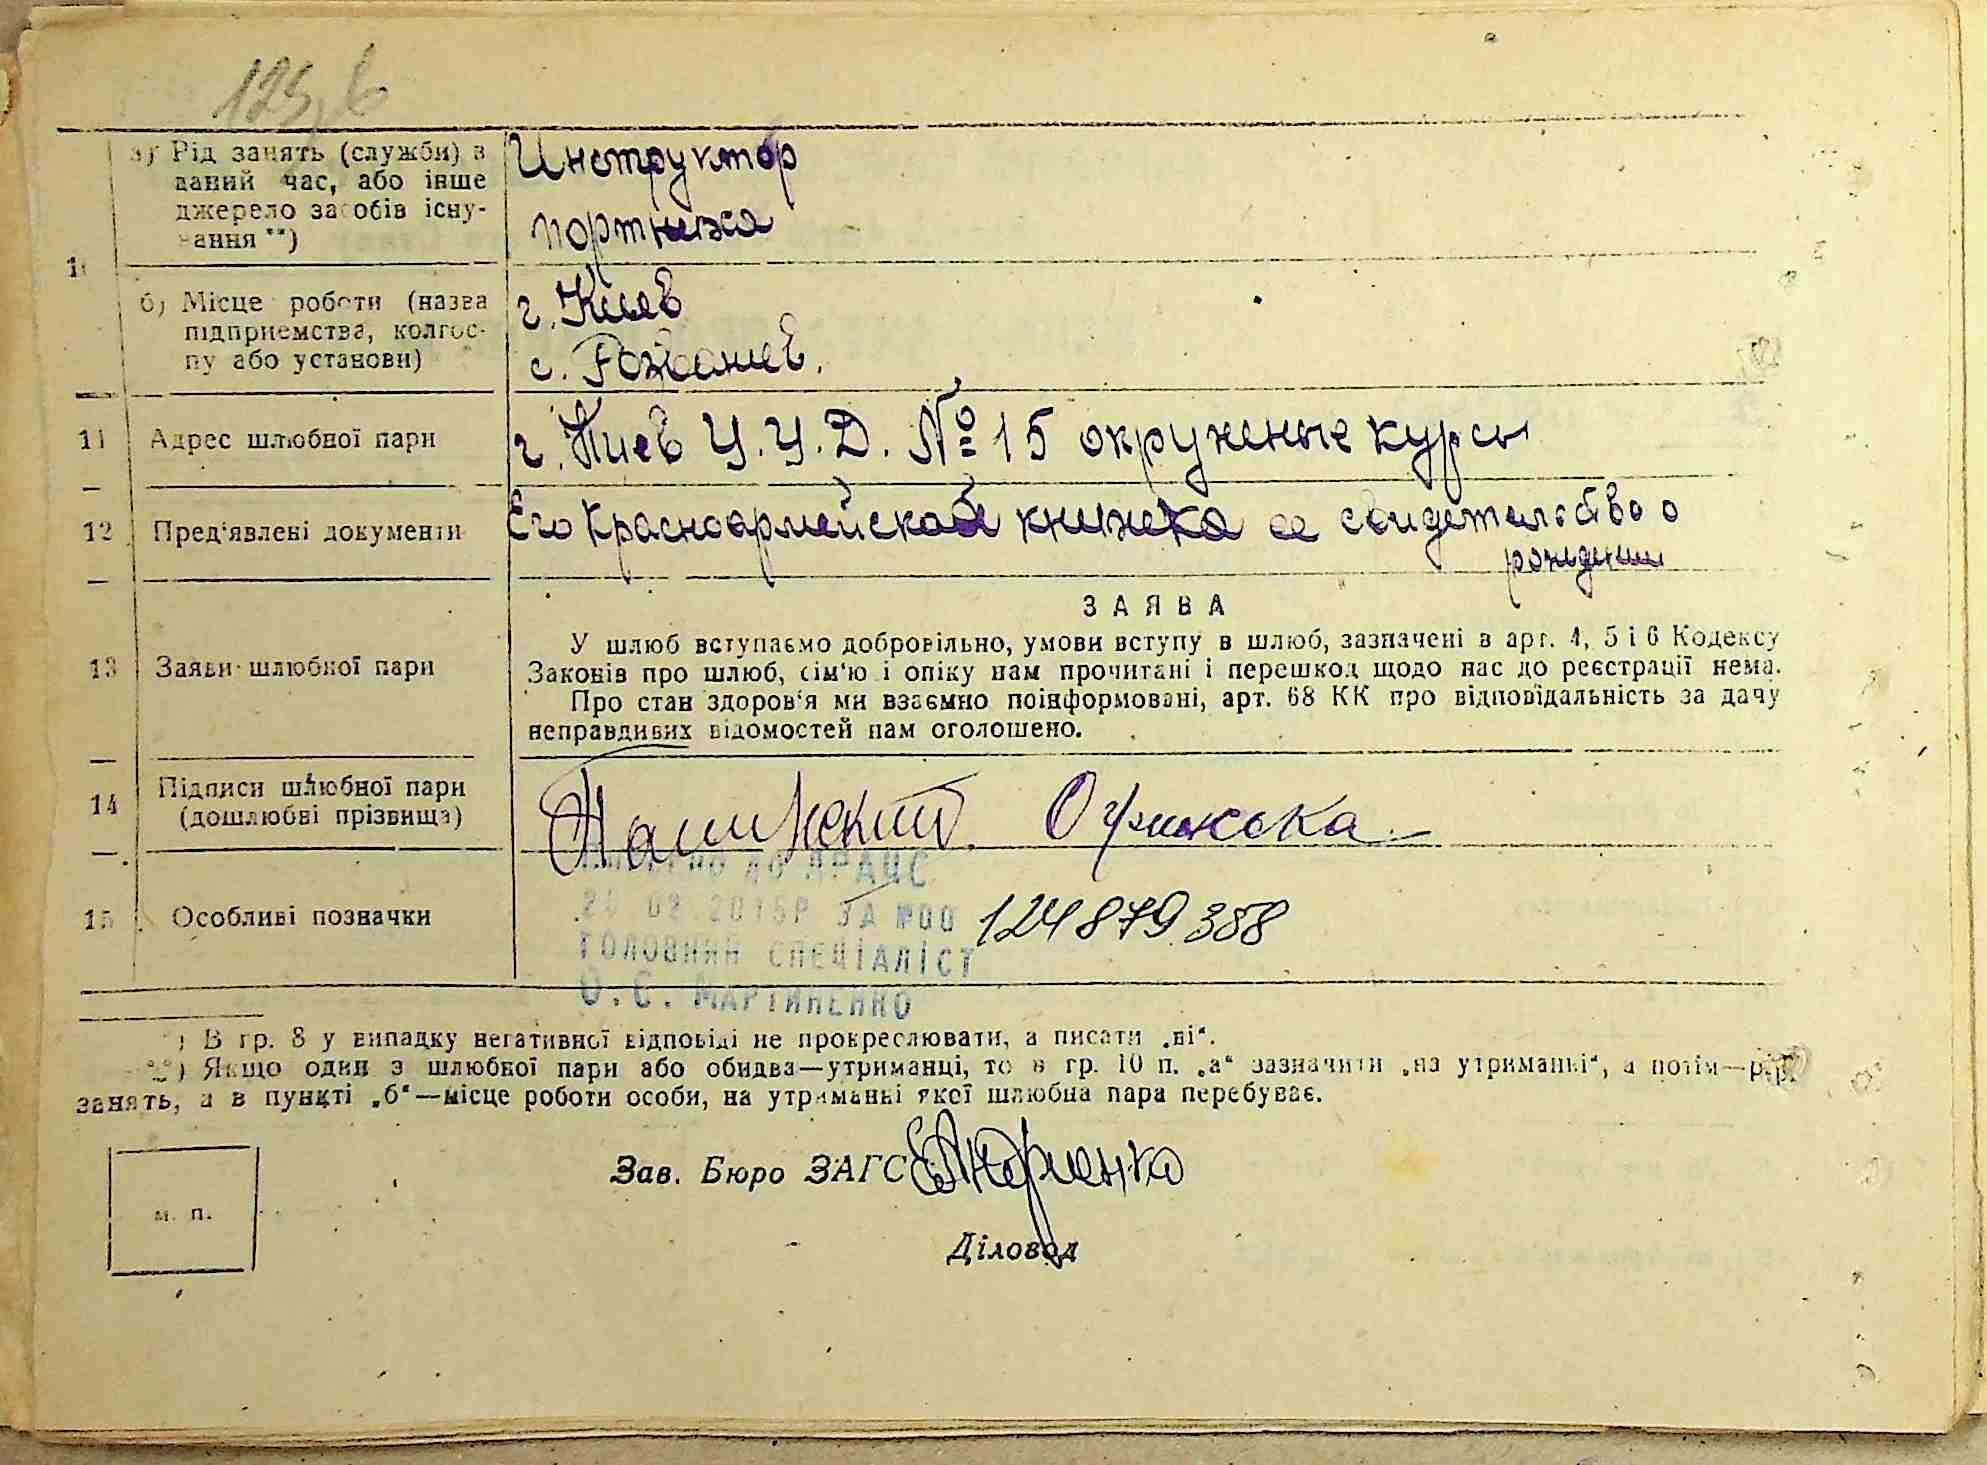 125,6
а) Рід занять (служби) в
даний час, або інше
джерело засобів існу-
вання **)
Инструктор
портниха
10
б) Місце роботи (назва
підприємства, колгос-
пу або установи)
г. Киев
с.
11 Адрес шлюбної пари
г. Киев У.У.Д. № 15 окруженые курсы
12 Пред'явлені документи
Его Красноармейская книжка ее свидетельство о
рождении
13 Заяви шлюбної пари
ЗАЯВА
У шлюб вступаємо добровільно, умови вступу в шлюб, зазначені в арт. 4, 5 і 6 Кодексу
Законів про шлюб, сім'ю і опіку нам прочитані і перешкод щодо нас до реєстрації нема.
Про стан здоров'я ми взаємно поінформовані, арт. 68 КК про відповідальність за дачу
неправдивих відомостей нам оголошено.
14 Підписи шлюбної пари
(дошлюбні прізвища)
15 Особливі позначки
ДО ДРАЦС
20 02 2015Р ЗА №00 124879358
ГОЛОВНИЙ СПЕЦІАЛІСТ
О.С. МАРТИНЕНКО
*) В гр. 8 у випадку негативної відповіді не прокреслювати, а писати „ні“.
**) Якщо один з шлюбної пари або обидва—утриманці, то в гр. 10 п. „а“ зазначити „на утриманні“, а потім—рід
занять, а в пункті „б“—місце роботи особи, на утриманні якої шлюбна пара перебуває.
Зав. Бюро ЗАГС
м. п.
Діловод